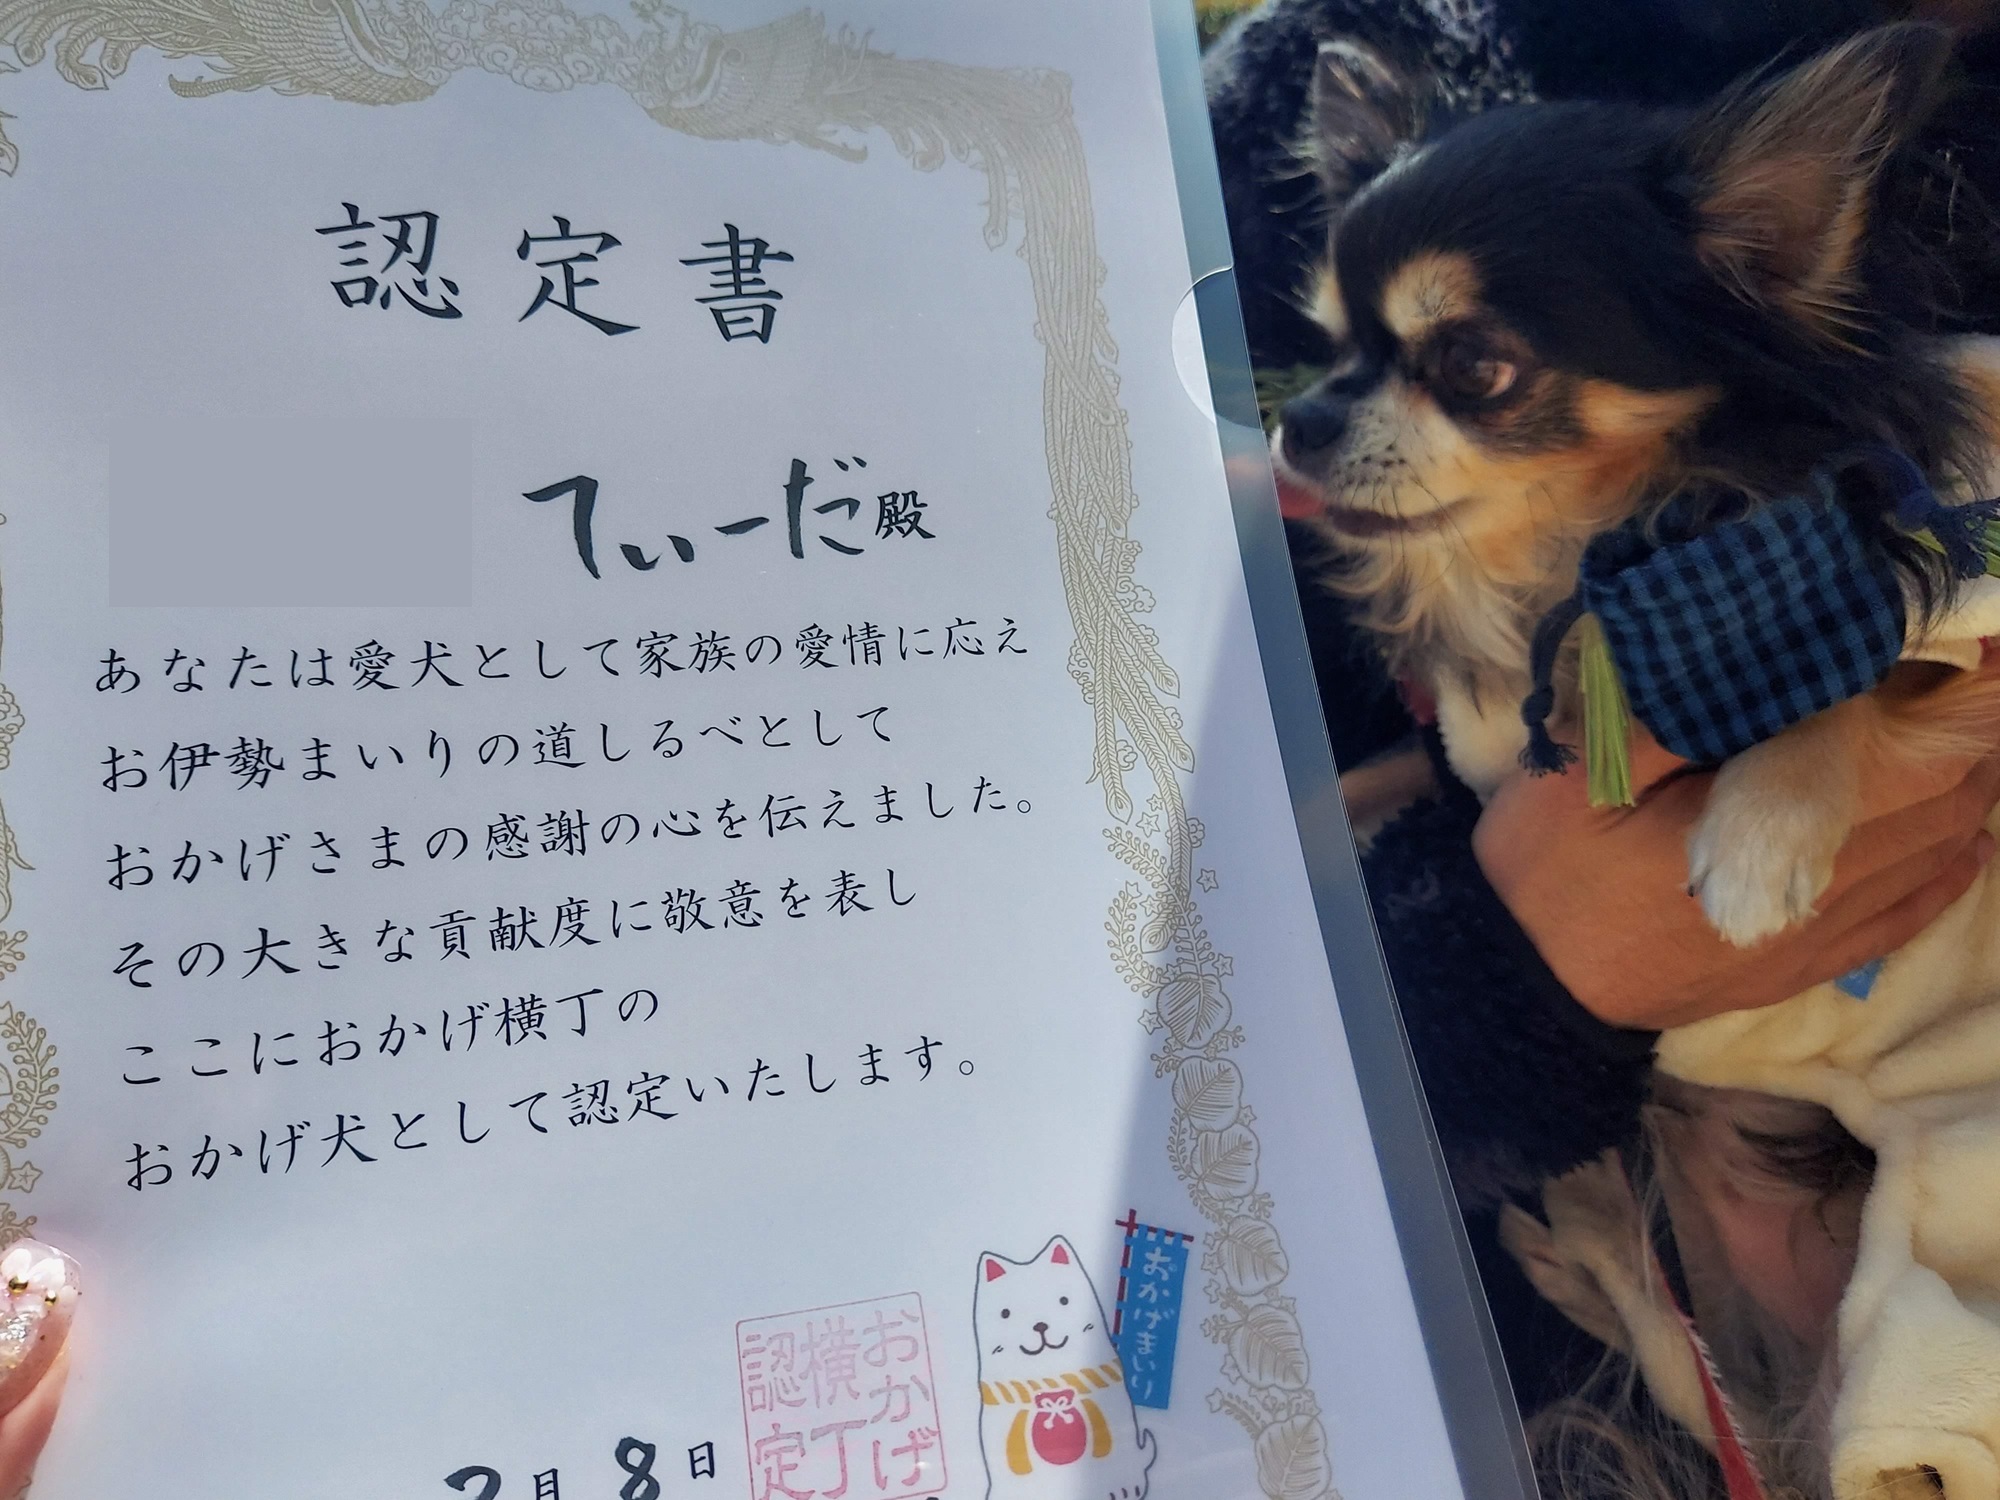 認定書
てぃーだ殿
あなたは愛犬として家族の愛情に応え
お伊勢まいりの道しるべとして
おかげさまの感謝の心を伝えました。
その大きな貢献度に敬意を表し
ここにおかげ横丁の
おかげ犬として認定いたします。
おかげまいり
おかげ
横丁
認定
2月8日